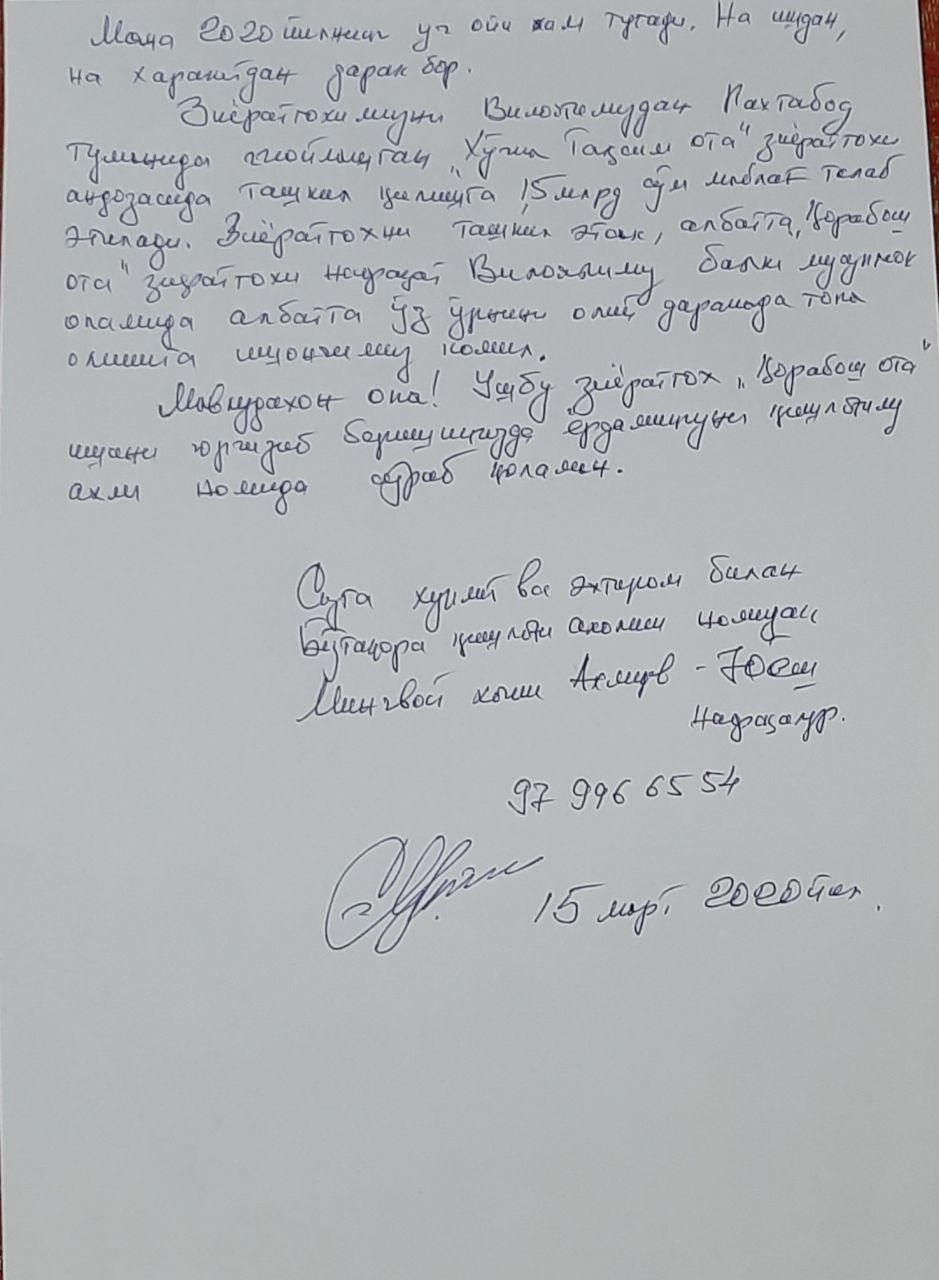 Мана 2020 йилнинг уч ойи хам тугади. На ишдан,
на харакатдан дарак бор.
Зиёратгохимизни Вилоятимиздан Пахтаобод
туманида жойлашган "Хўжа Тақсим ота" зиёратгохи
андозасида ташкил қилишга 15 млрд сўм маблағ талаб
этилади. Зиёратгохни ташкил этсак, албатта, "Қорабош
ота" зиёратгохи нафақат Вилоятимиз балки мусулмон
оламида албатта ўз ўрнини олий даражада топа
олишига ишончимиз комил.
Мавлудахон опа! Ушбу зиёратгох "Қорабош ота"
ишини юргизиб беришингизда ёрдамингизни қишлоғим
ахли номида сўраб қоламан.
Сизга хурмат ва эхтиром билан
Бўтақора қишлоғи ахолиси номидан
Мингвой хожи Ахмедов - 70 ёш
нафақахўр.
97 996 65 54
15 март 2020 йил.